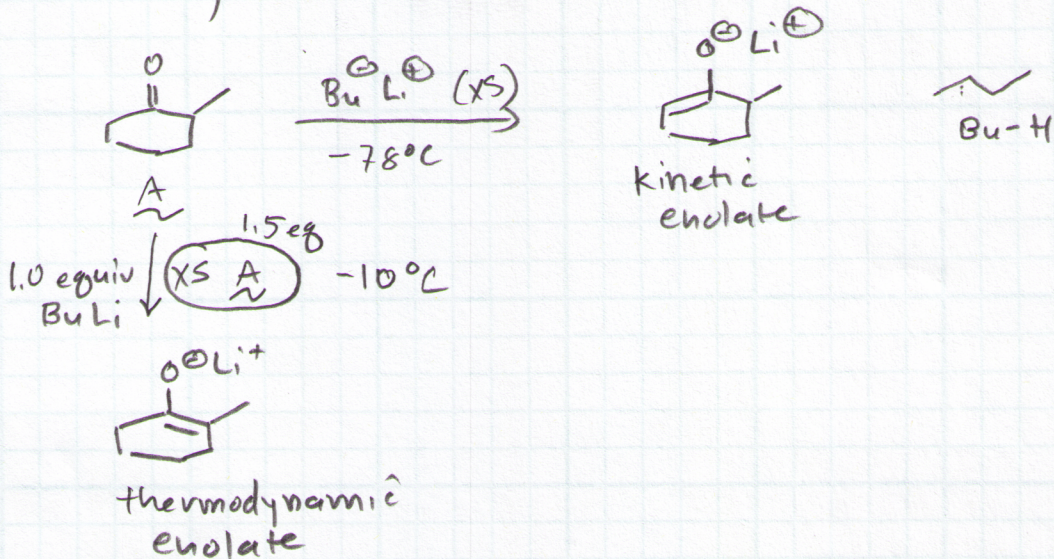 O
Bu⊖ Li⊕ (xs)
-78°C
A
O⊖ Li⊕
kinetic
enolate
Bu-H
1.5 eq
1.0 equiv
BuLi
xs A
-10°C
O⊖Li+
thermodynamic
enolate